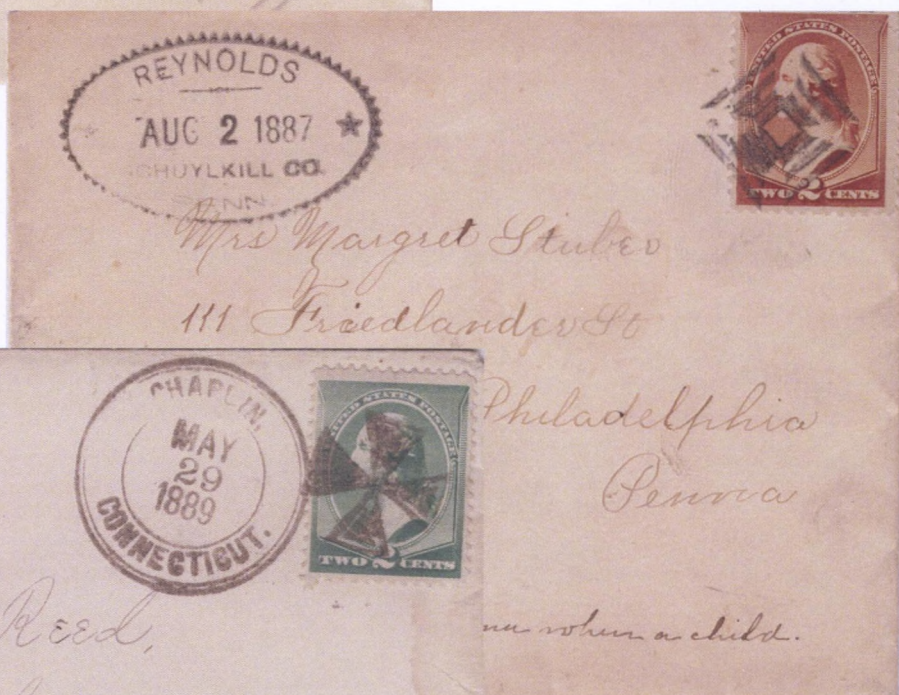 REYNOLDS
AUG 2 1887
CHUYLKILL CO.
PENN.
UNITED STATES POSTAGE
TWO 2 CENTS
Mrs Margret Stuber
111 Friedlander St
Philadelphia
Penna
CHAPLIN,
MAY
29
1889
CONNECTICUT.
UNITED STATES POSTAGE
TWO 2 CENTS
Reed,
when a child.